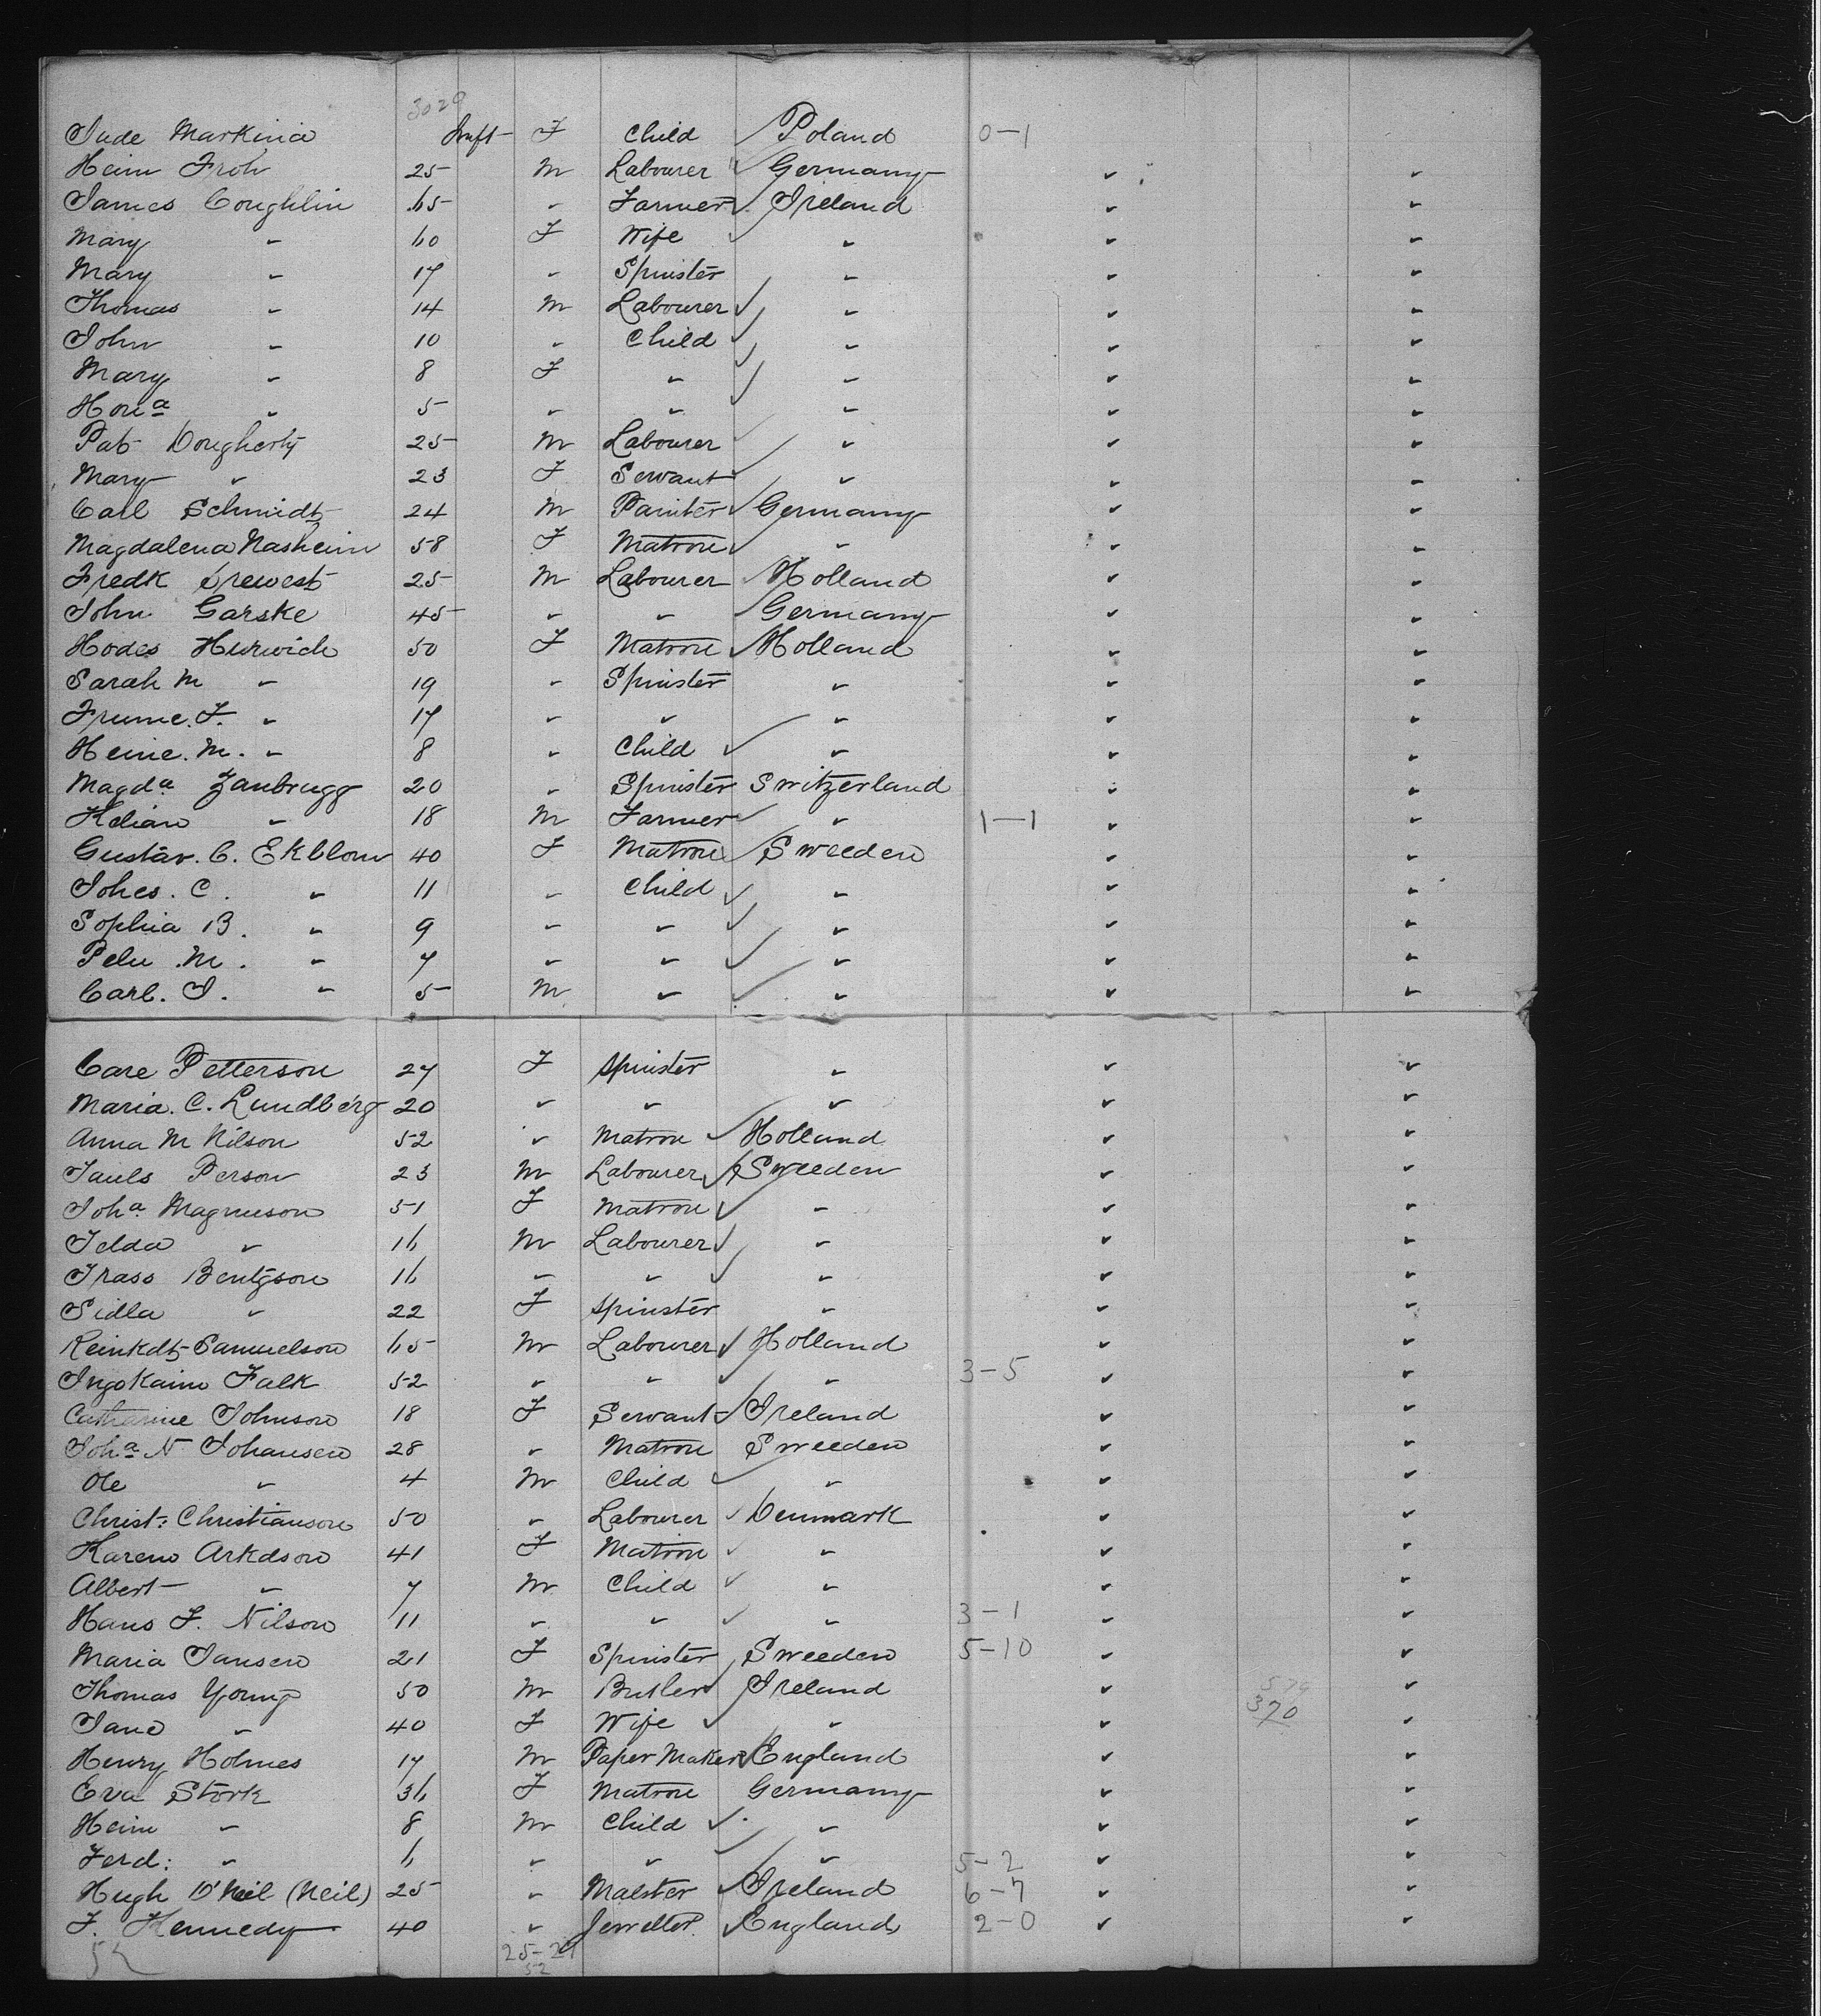 3029
Jude Markinia Inft F Child Poland 0-1
Heim Froh 25 M Labourer Germany " "
James Coughlin 65 " Farmer Ireland " "
Mary " 60 F Wife " " "
Mary " 17 " Spinster " " "
Thomas " 14 M Labourer " " "
John " 10 " Child " " "
Mary " 8 F " " " "
Hona " 5 " " " " "
Pat Dougherty 25 M Labourer " " "
Mary " 23 F Servant " " "
Carl Schmidt 24 M Painter Germany " "
Magdalena Nasheim 58 F Matron " " "
Fredk Drewest 25 M Labourer Holland " "
John Garske 45 " " Germany " "
Hodes Hurwich 50 F Matron Holland " "
Sarah M " 19 " Spinster " " "
Frume. F. " 17 " " " " "
Heine. M. " 8 " Child " " "
Magda Zanbrugg 20 " Spinster Switzerland " "
Kelian " 18 M Farmer " 1-1 " "
Gustav. C. Ekblom 40 F Matron Sweeden " "
Johes. C. " 11 " Child " " "
Sophia B. " 9 " " " " "
Pelu. M. " 7 " " " " "
Carl. J. " 5 M " " " "
Care Petterson 27 F Spinster " " "
Maria. C. Lundberg 20 " " " " "
Anna M Nilson 52 " Matron Holland " "
Jauls Person 23 M Labourer Sweeden " "
Joha Magnuson 51 F Matron " " "
Telda " 16 M Labourer " " "
Trass Bentgson 16 " " " " "
Sidla " 22 F Spinster " " "
Reinkdt Samuelson 65 M Labourer Holland " "
Ingokaim Falk 52 " " " 3-5 " "
Catharine Johnson 18 F Servant Ireland " "
Joha N Johansen 28 " Matron Sweeden " "
Ole " 4 M Child " " "
Christ: Christianson 50 " Labourer Denmark " "
Karen Arkdson 41 F Matron " " "
Albert " 7 M Child " " "
Hans F. Nilson 11 " " " 3-1 " "
Maria Jansen 21 F Spinster Sweeden 5-10 " "
Thomas Young 50 M Butler Ireland " 370 "
Jane " 40 F Wife " " "
Henry Holmes 17 M Paper Maker England " "
Eva Stork 36 F Matron Germany " "
Heim " 8 M Child " " "
Ferd: " 6 " " " 5-2 " "
Hugh O'Neil (Neil) 25 " Malster Ireland 6-7 " "
F. Kennedy 40 " Jeweller England 2-0 " "
52 25-27
52